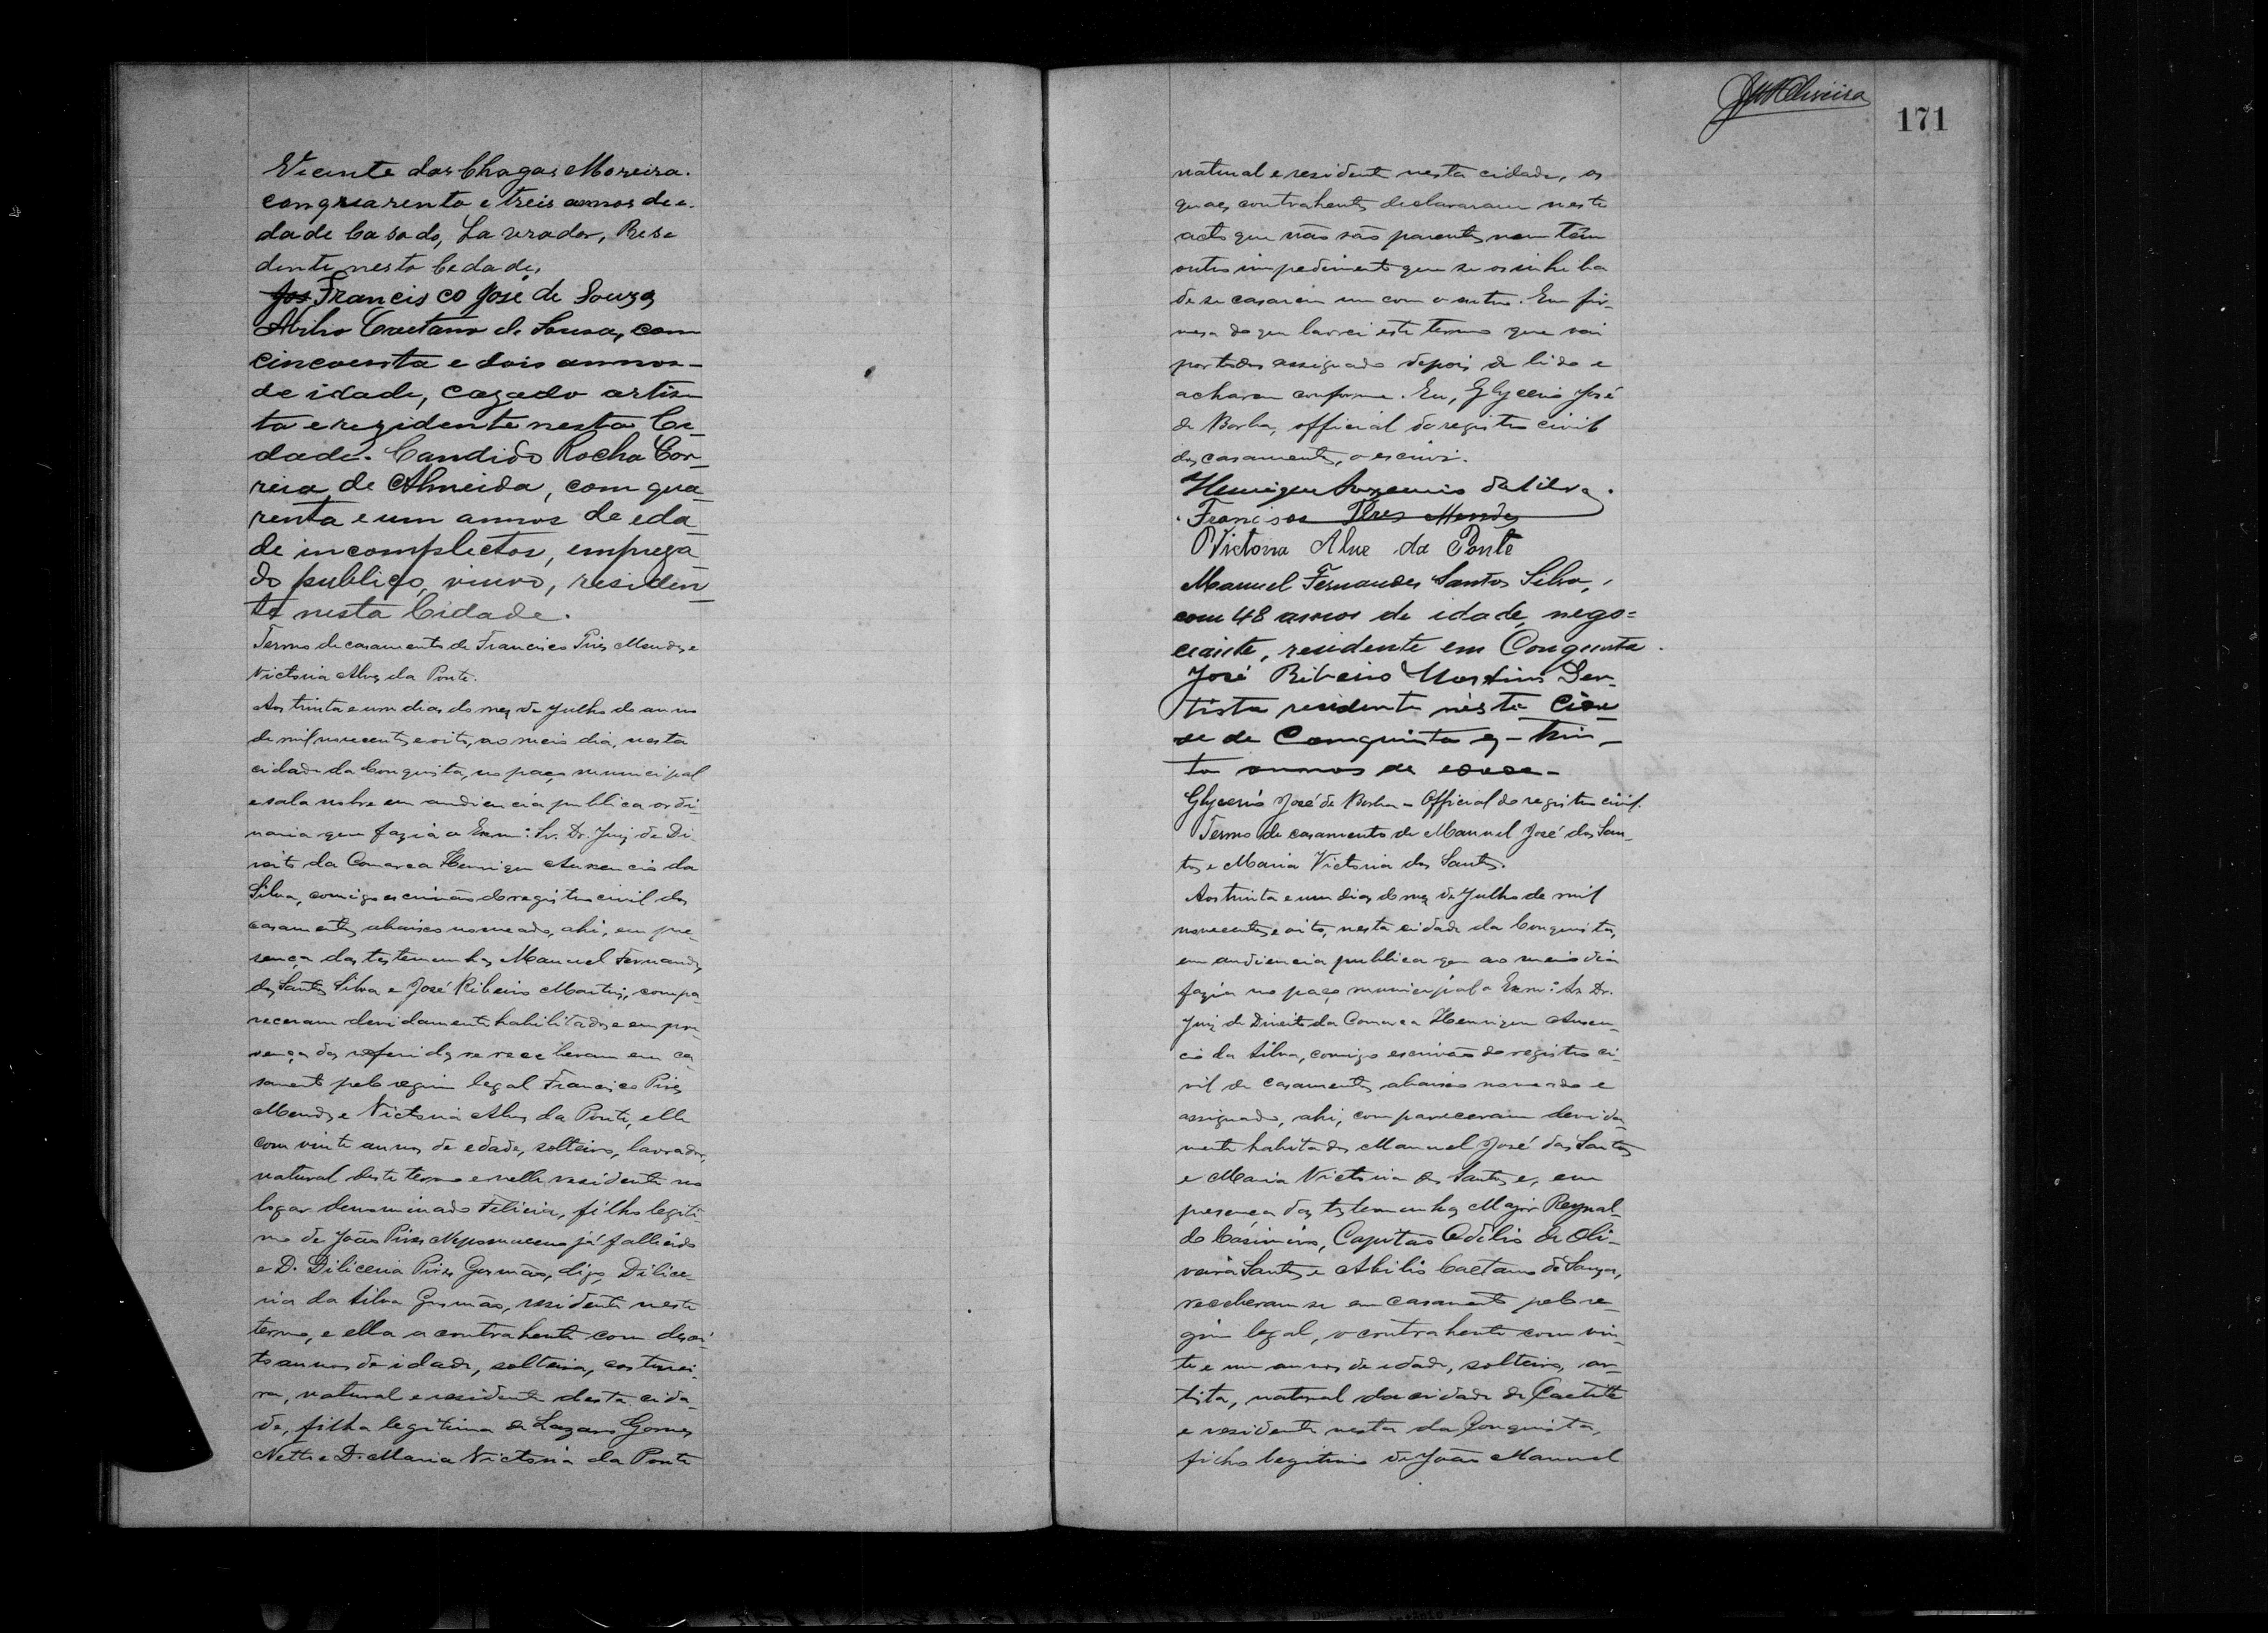 Vicente das Chagas Moreira.
com quarenta e treis annos de e.
dade Casado, Lavrador, Rese
dente nesta Cedade,
Jos Francisco José de Souza
Abilio Caetano de Sousa, com
cincoenta e dois annos-
de idade, cazado artis
ta e rezidente nesta Ci-
dade. Candido Rocha Cor-
reia de Almeida, com qua-
renta e um annos de eda
de incomplectos, emprega
do publico, viuvo, residen
te nesta Cidade.
Termo de casamento de Francisco Pires Mendes e
Victoria Alves da Ponte.
Aos trinta e um dias do mez de Julho do anno
de mil novecentos e oito, ao meio dia, nesta
cidade da Conquista, no paço municipal
e sala nobre em audiencia publica ordi-
naria que fazia o Exmo. Sr. Dr. Juiz de Di-
reito da Comarca Henrique Auxencio da
Silva, comigo escrivão do registro civil dos
casamentos abaixo nomeado, ahi, em pre-
sença das testemunhas Manuel Fernandes
dos Santos Silva e José Ribeiro Martins, compa-
receram devidamente habilitados e em pre-
sença dos referidos se receberam em ca-
samento pelo regim legal Francisco Pires
Mendes e Victoria Alves da Ponte, elle
com vinte annos de edade, solteiro, lavrador,
natural deste termo e nelle residente no
logar denominado Felicia, filho legiti-
mo de João Pires Nepomuceno já fallecido
e D. Diliceria Pires Gusmão, digo, Dilice-
ria da Silva Gusmão, residente neste
termo, e ella a contrahente com desoi-
to annos de idade, solteira, costurei-
ra, natural e residente desta cida-
de, filha legitima de Lazaro Gomes
Netto e D. Maria Victoria da Ponte
171
natural e residente nesta cidade, os
quaes contrahentes declararam neste
acto que não são parentes nem têm
outro impedimento que se os inhiba
de se casarem um com o outro. Em fir-
mesa do que lavrei este termo que vai
por todos assignado depois de lido e
acharem conforme. Eu, Glycerio José
de Borba, official do registro civil
dos casamentos, o escrevi.
Henrique Auxencio da Silva.
Francisco Pires Mendes
Victoria Alve da Ponte
Manuel Fernandes Santos Silva,
com 48 annos de idade, nego=
ciante, residente em Conquista.
José Ribeiro Martins Den-
tista residente nésta Cida
de de Conquista e - trin-
ta annos de edade-
Glycerio José de Borba - Official do registro civil.
Termo de casamento de Manuel José dos San-
tos e Maria Victoria dos Santos.
Aos trinta e um dias do mez de Julho de mil
novecentos e oito, nesta cidade da Conquista,
em audiencia publica que ao meio dia
fazia no paço municipal o Exmo. Sr. Dr.
Juiz de Direito da Comarca Henrique Auxen-
cio da Silva, comigo escrivão do registro ci-
vil de casamentos, abaixo nomeado e
assignado, ahi, compareceram devida-
mente habitados Manuel José dos Santos
e Maria Victoria dos Santos e, em
presença das testemunhas Major Reynal-
do Casimiro, Capitão Odilio de Oli-
veira Santos e Abilio Caetano de Souza,
receberam se em casamento pelo re-
gim legal, o contrahente com vin-
te e um annos de edade, solteiro, ar-
tista, natural da cidade de Caetité
e residente nesta da Conquista,
filho legitimo de João Manuel